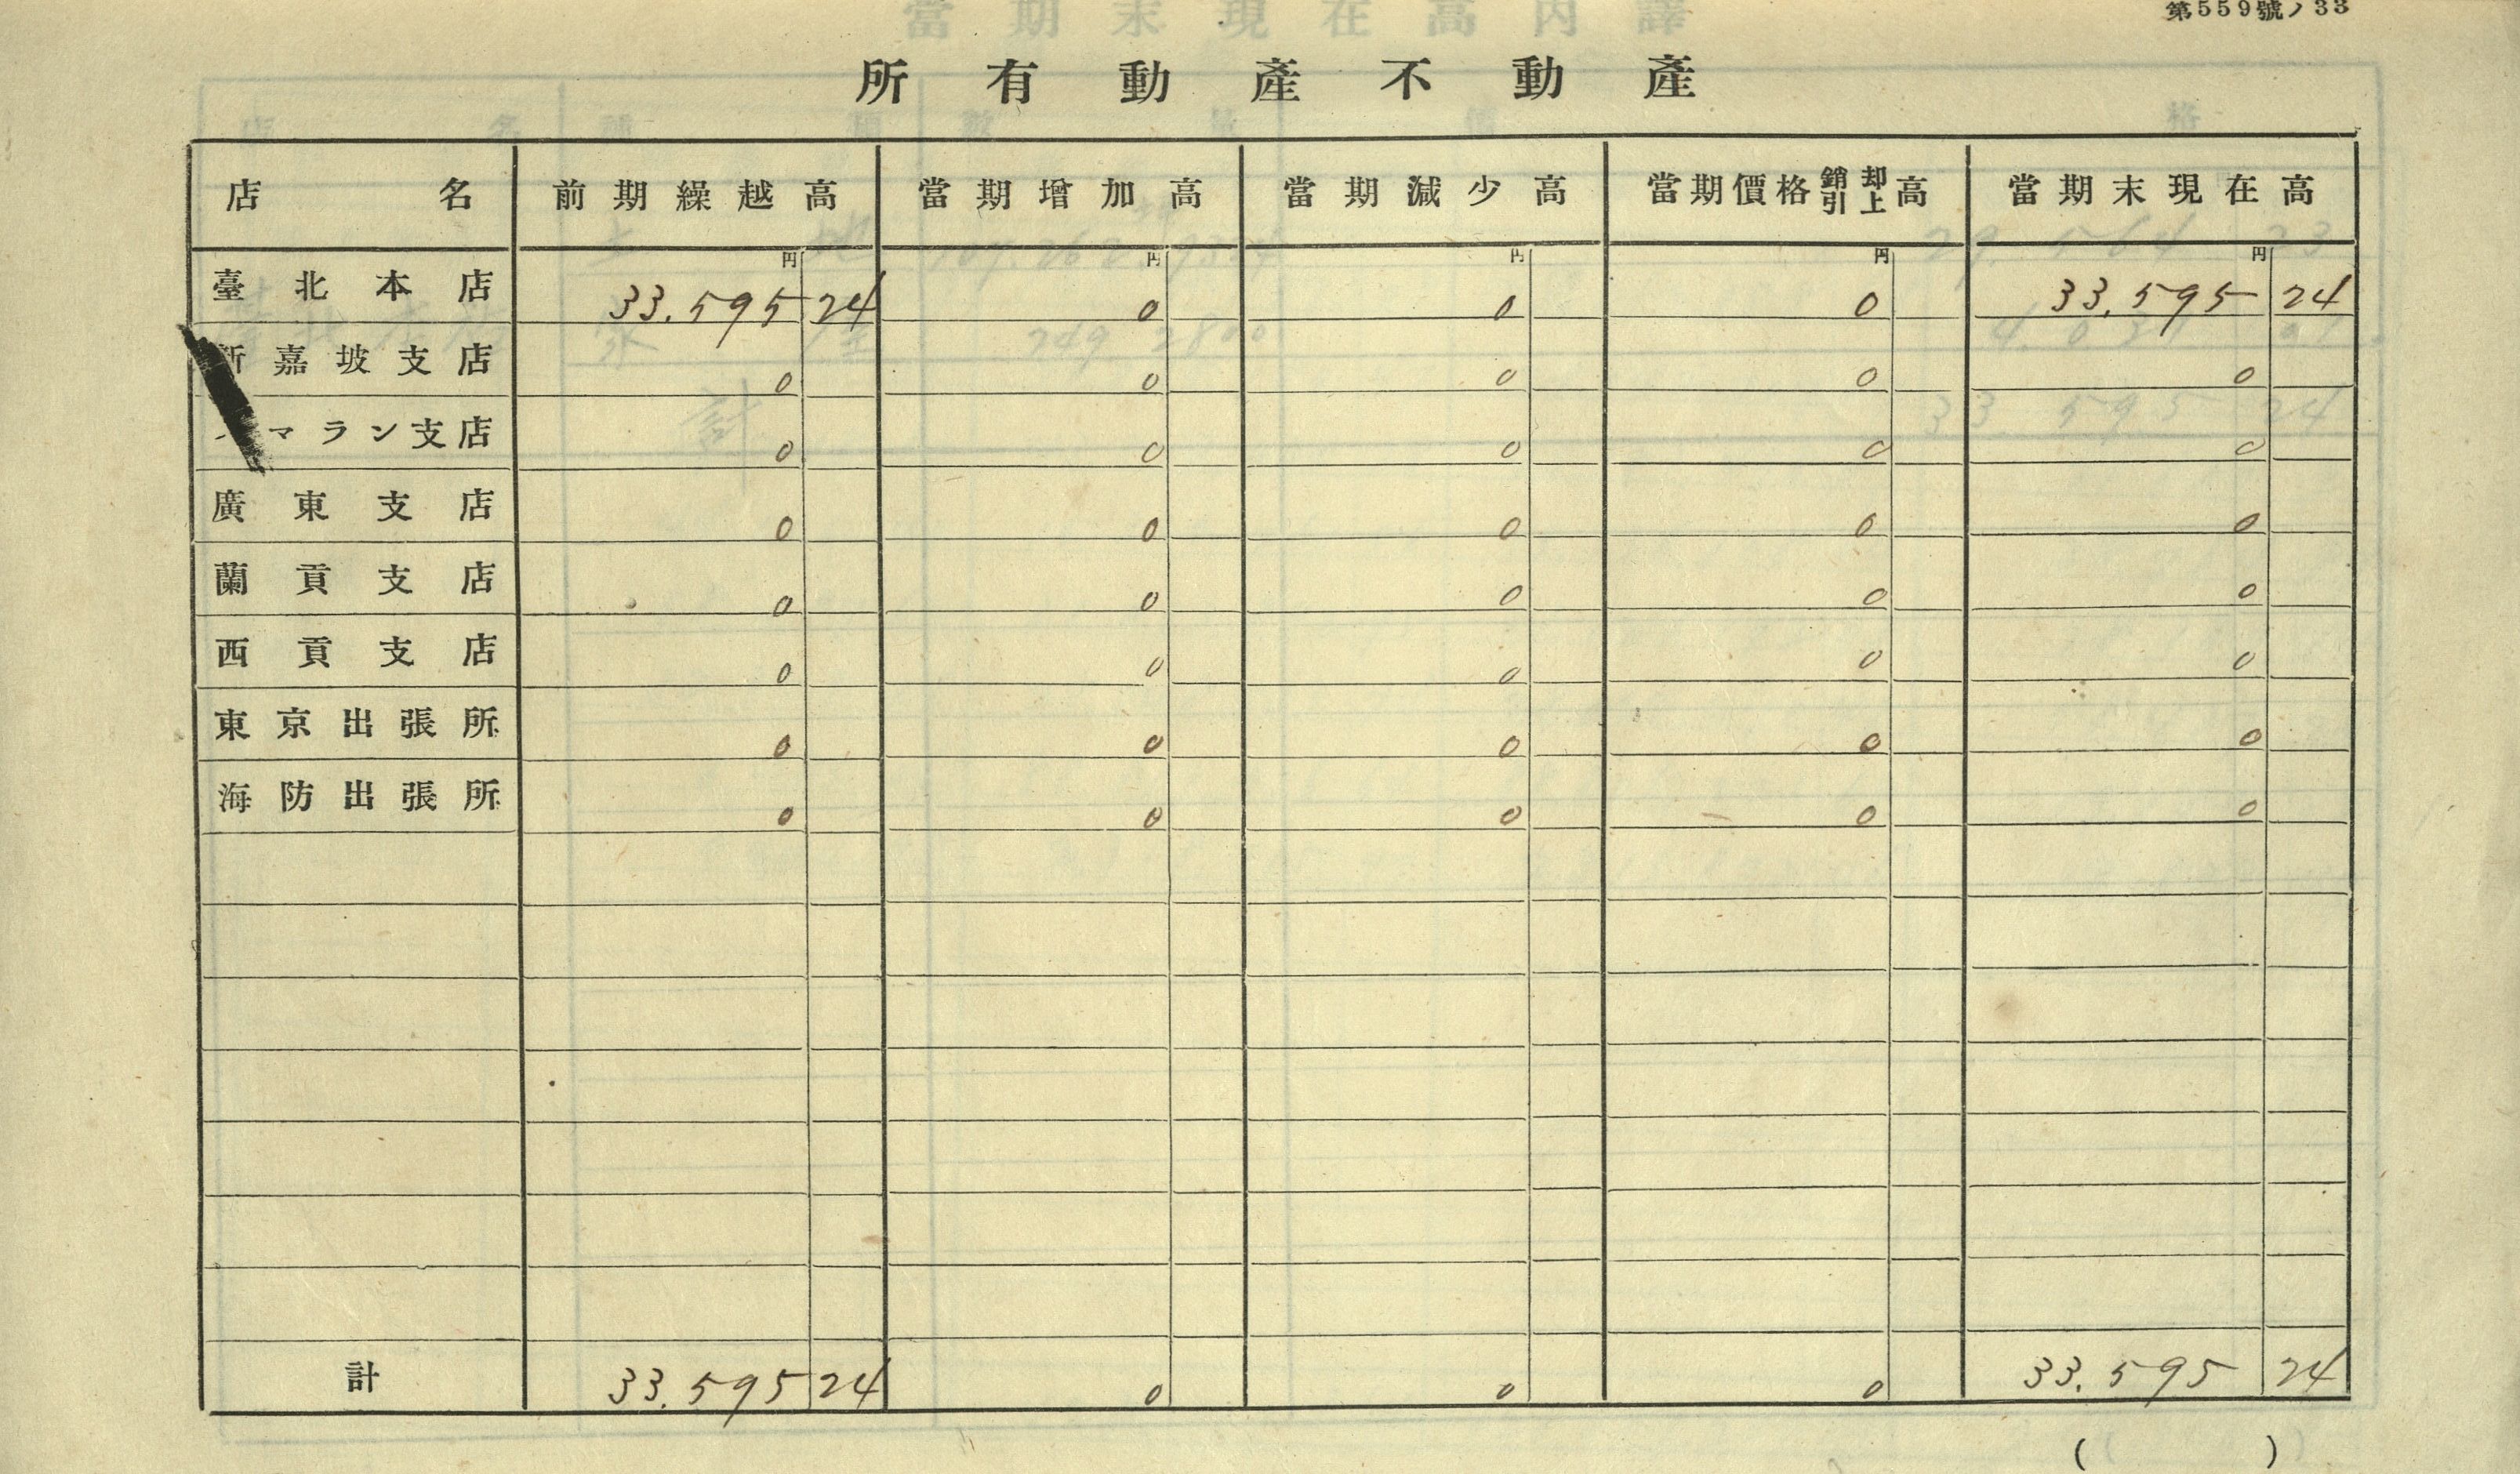 第559號ノ33
所有動產不動產
店名 前期繰越高 當期増加高 當期減少高 當期價格銷却引上高 當期末現在高
円 円 円 円 円
臺北本店 33.595 24 0 0 0 33.595 24
新嘉坡支店 0 0 0 0 0
マラン支店 0 0 0 0 0
廣東支店 0 0 0 0 0
蘭貢支店 0 0 0 0 0
西貢支店 0 0 0 0 0
東京出張所 0 0 0 0 0
海防出張所 0 0 0 0 0
計 33.595 24 0 0 0 33.595 24
( )